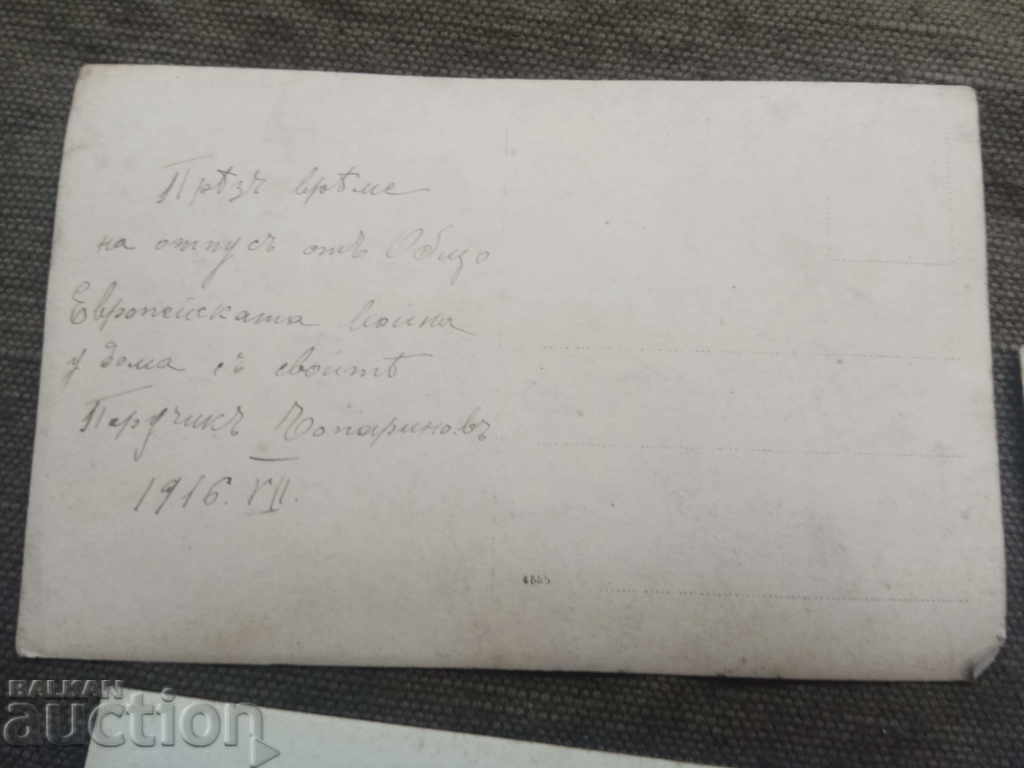 Прѣзъ врѣме
на отпусъ отъ Общо
Европейската война
у дома съ своитѣ
Поручикъ Чопариновъ
1916. VII.
4865
BALKAN
auction